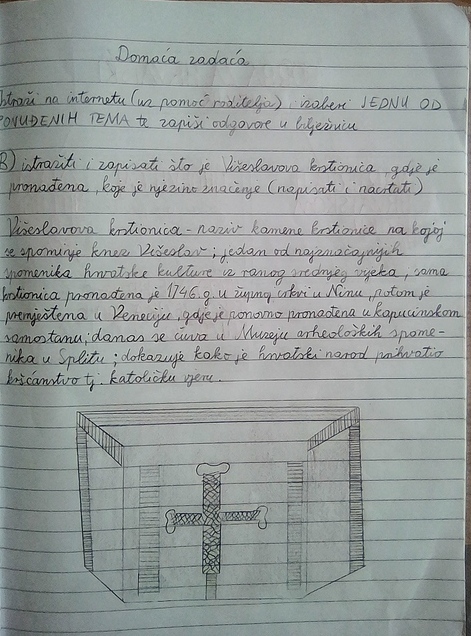 Domaća zadaća
Istraži na internetu (uz pomoć roditelja), izaberi JEDNU OD
PONUĐENIH TEMA te zapiši odgovore u bilježnicu
B) istražiti i zapisati što je Višeslavova krstionica, gdje je
pronađena, koje je njezino značenje (napisati i nacrtati)
Višeslavova krstionica - naziv kamene krstionice na kojoj
se spominje knez Višeslav; jedan od najznačajnijih
spomenika hrvatske kulture iz ranog srednjeg vijeka, sama
krstionica pronađena je 1746.g. u župnoj crkvi u Ninu, potom je
premještena u Veneciju, gdje je ponovno pronađena u kapucinskom
samostanu; danas se čuva u Muzeju arheoloških spome-
nika u Splitu; dokazuje kako je hrvatski narod prihvatio
kršćanstvo tj. katoličku vjeru.